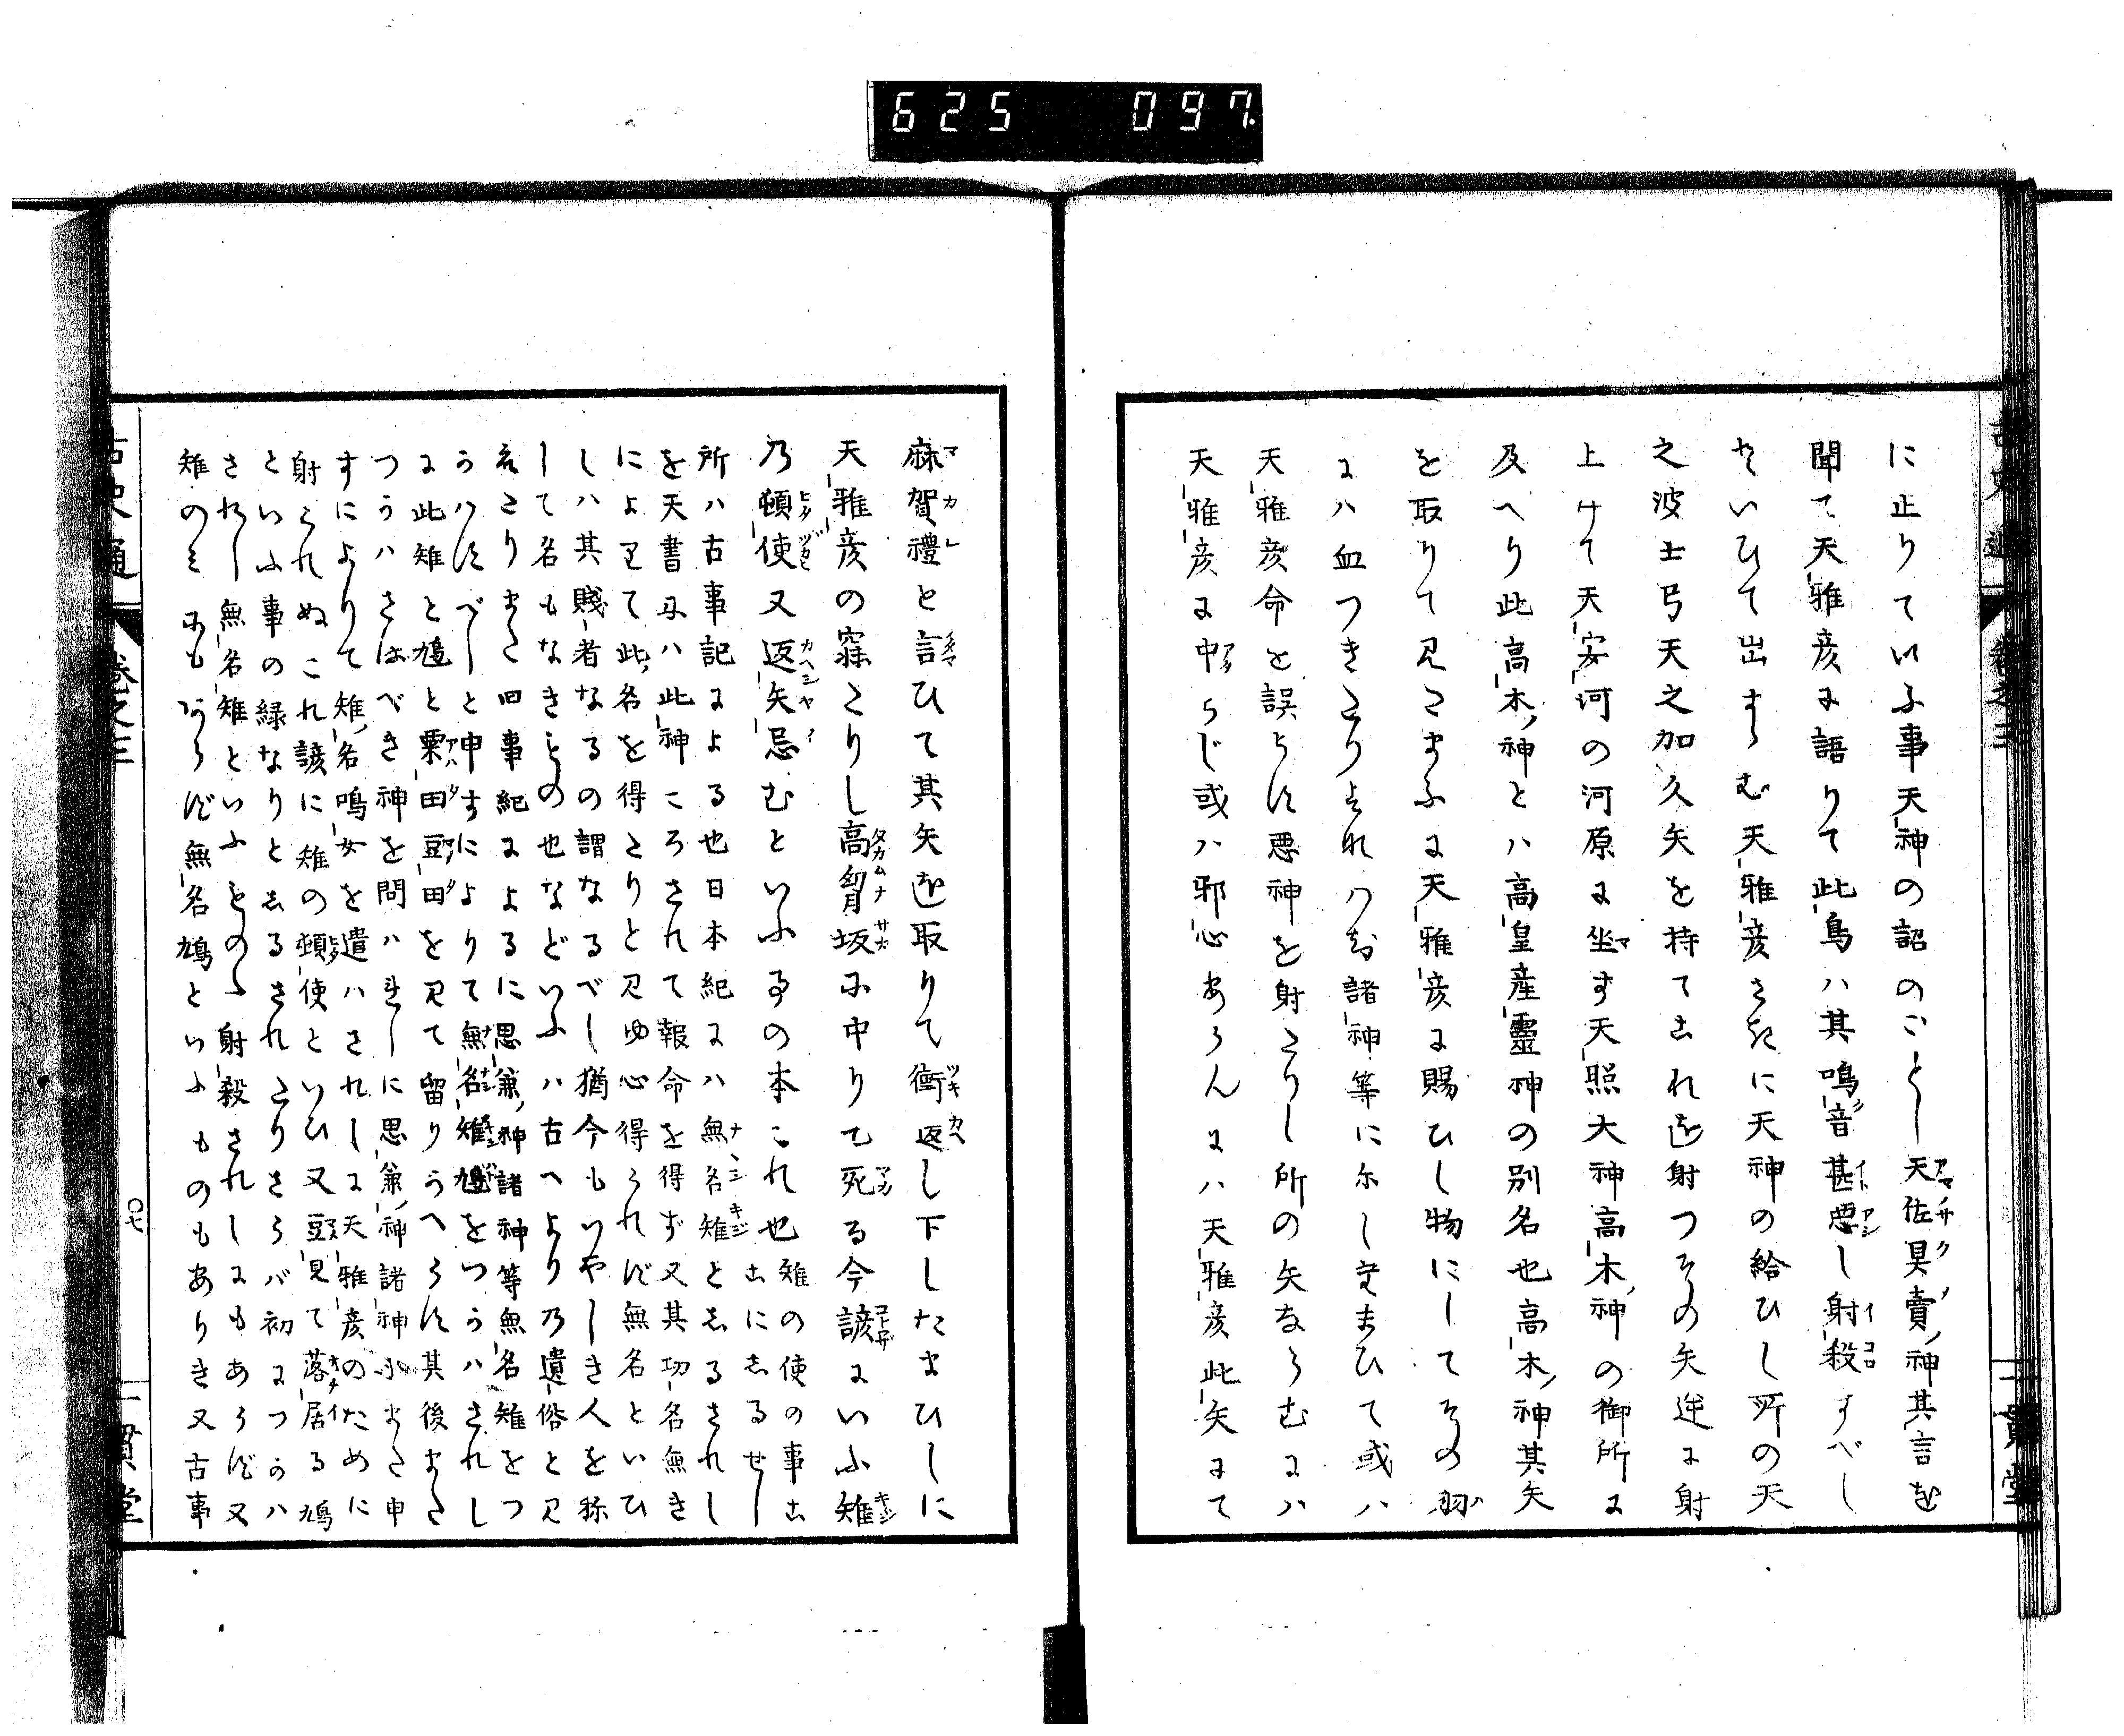 625 097.
に止りていふ事天神の詔のごとし天佐具賣神其言を
聞て天雅彦に語りて此鳥ハ其鳴音甚悪し射殺すべし
といひて出すらむ天雅彦さきに天神の給ひし所の天
之波士弓天之加久矢を持てこれを射つその矢逆に射
上けて天安河の河原に坐す天照大神高木神の御所に
及へり此高木神とハ高皇産靈神の別名也高木神其矢
を取りて見たまふに天雅彦に賜ひし物にしてその羽
にハ血つきたりけれハ諸神等に示したまひて或ハ
天雅彦命を誤らず悪神を射たりし所の矢ならむにハ
天雅彦に中らじ或ハ邪心あらんにハ天雅彦此矢にて
麻賀禮と言ひて其矢を取りて衝返し下したまひしに
天雅彦の寐たりし高胷坂に中りて死る今諺にいふ雉
乃頓使又返矢忌むといふ事の本これ也雉の使の事こ
こにしるせし
所ハ古事記による也日本紀にハ無名雉としるされし
を天書にハ此神ころされて報命を得ず又其功名無き
によりて此名を得たりと見ゆ心得られず無名といひ
しハ其賤者なるの謂なるべし猶今もいやしき人を称
して名もなきもの也などいふハ古へより乃遺俗と見
えたりまた旧事紀によるに思兼神諸神等無名雉をつ
かハすべしと申すによりて無名雉鳩をつかハされし
に此雉と鳩と粟田豆田を見て留りかへらず其後また
つかハさはべき神を問ハれしに思兼神諸神等また申
すによりて雉名鳴女を遣ハされしに天雅彦のために
射られぬこれ諺に雉の頓使といひ又豆見て落居る鳩
といふ事の縁なりとしるされたりさらバ初につかハ
されし無名雉といふもの射殺されしにもあらず又
雉のミにもあらず無名鳩といふものもありき又古事
古史通
卷之三
〇七
一貫堂